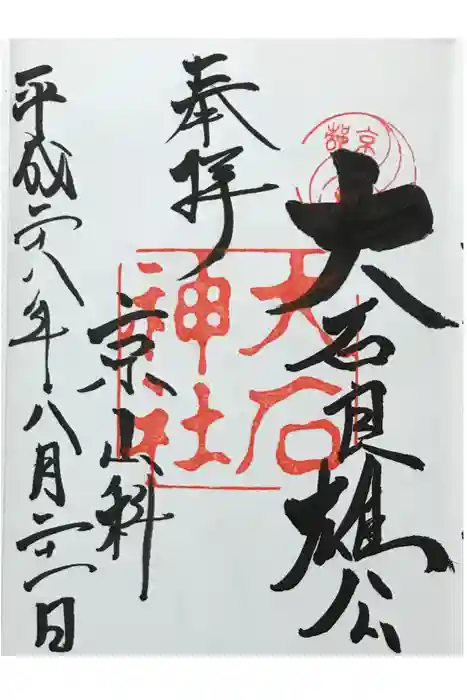 京都
大石良雄公
奉拝
大石
神社
京山科
平成二十八年八月二十一日